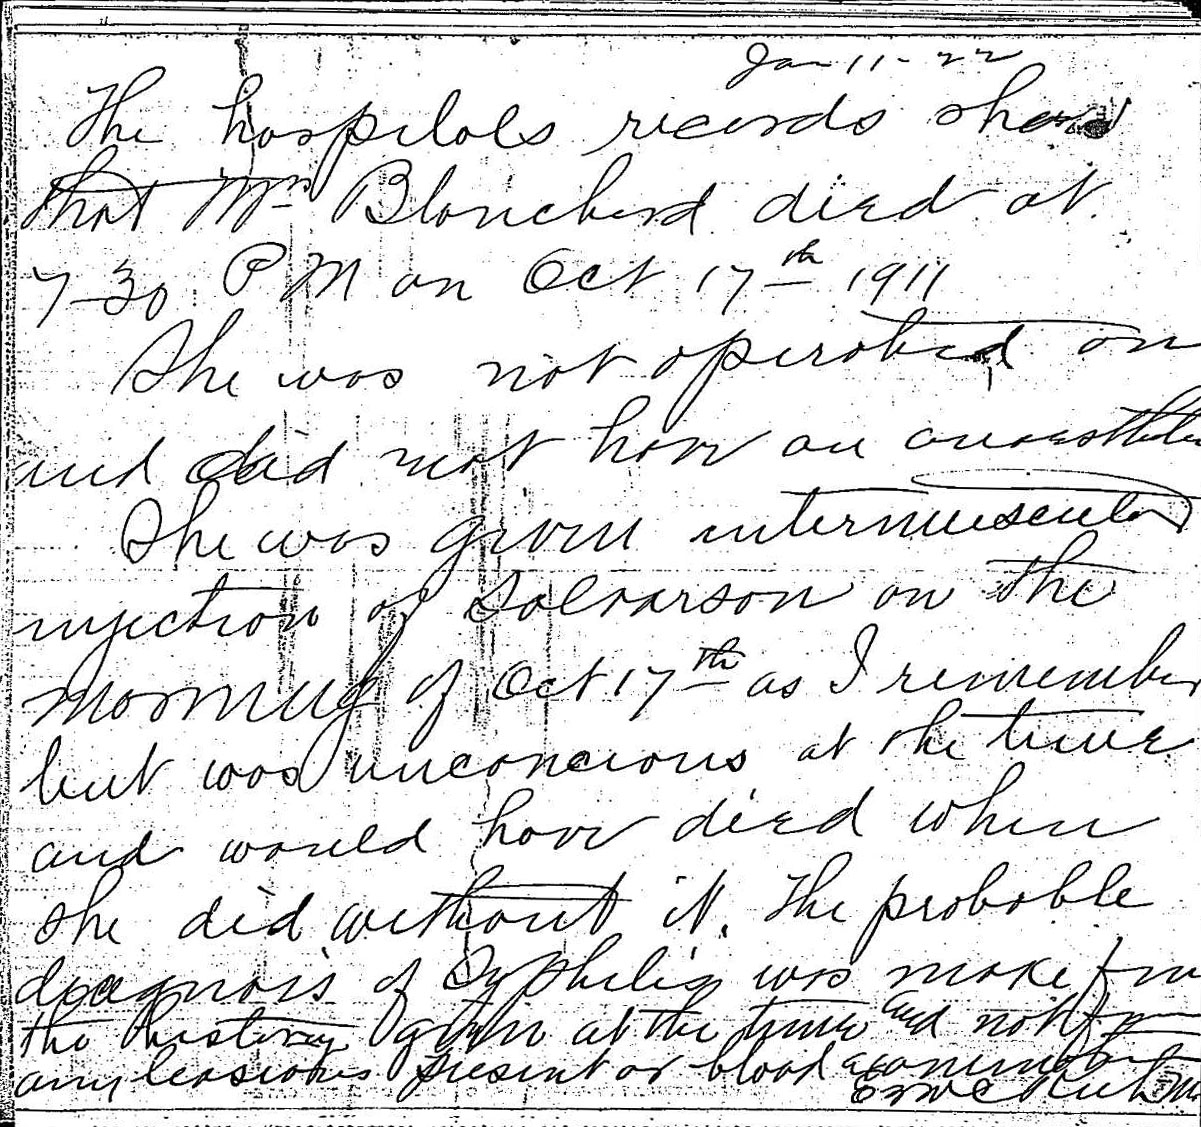 Jan 11-22
The hospitals records show
that Mrs Blanchard died at
7-30 P M on Oct 17th 1911
She was not operated on
and did not have an
She was given intermuscular
injection of Salvarson on the
morning of Oct 17th as I remember
but was unconcious at the time
and would have died when
she did without it. The probable
diagnosis of Syphilis was make from
the history given at the time and not from
any leasions present or blood